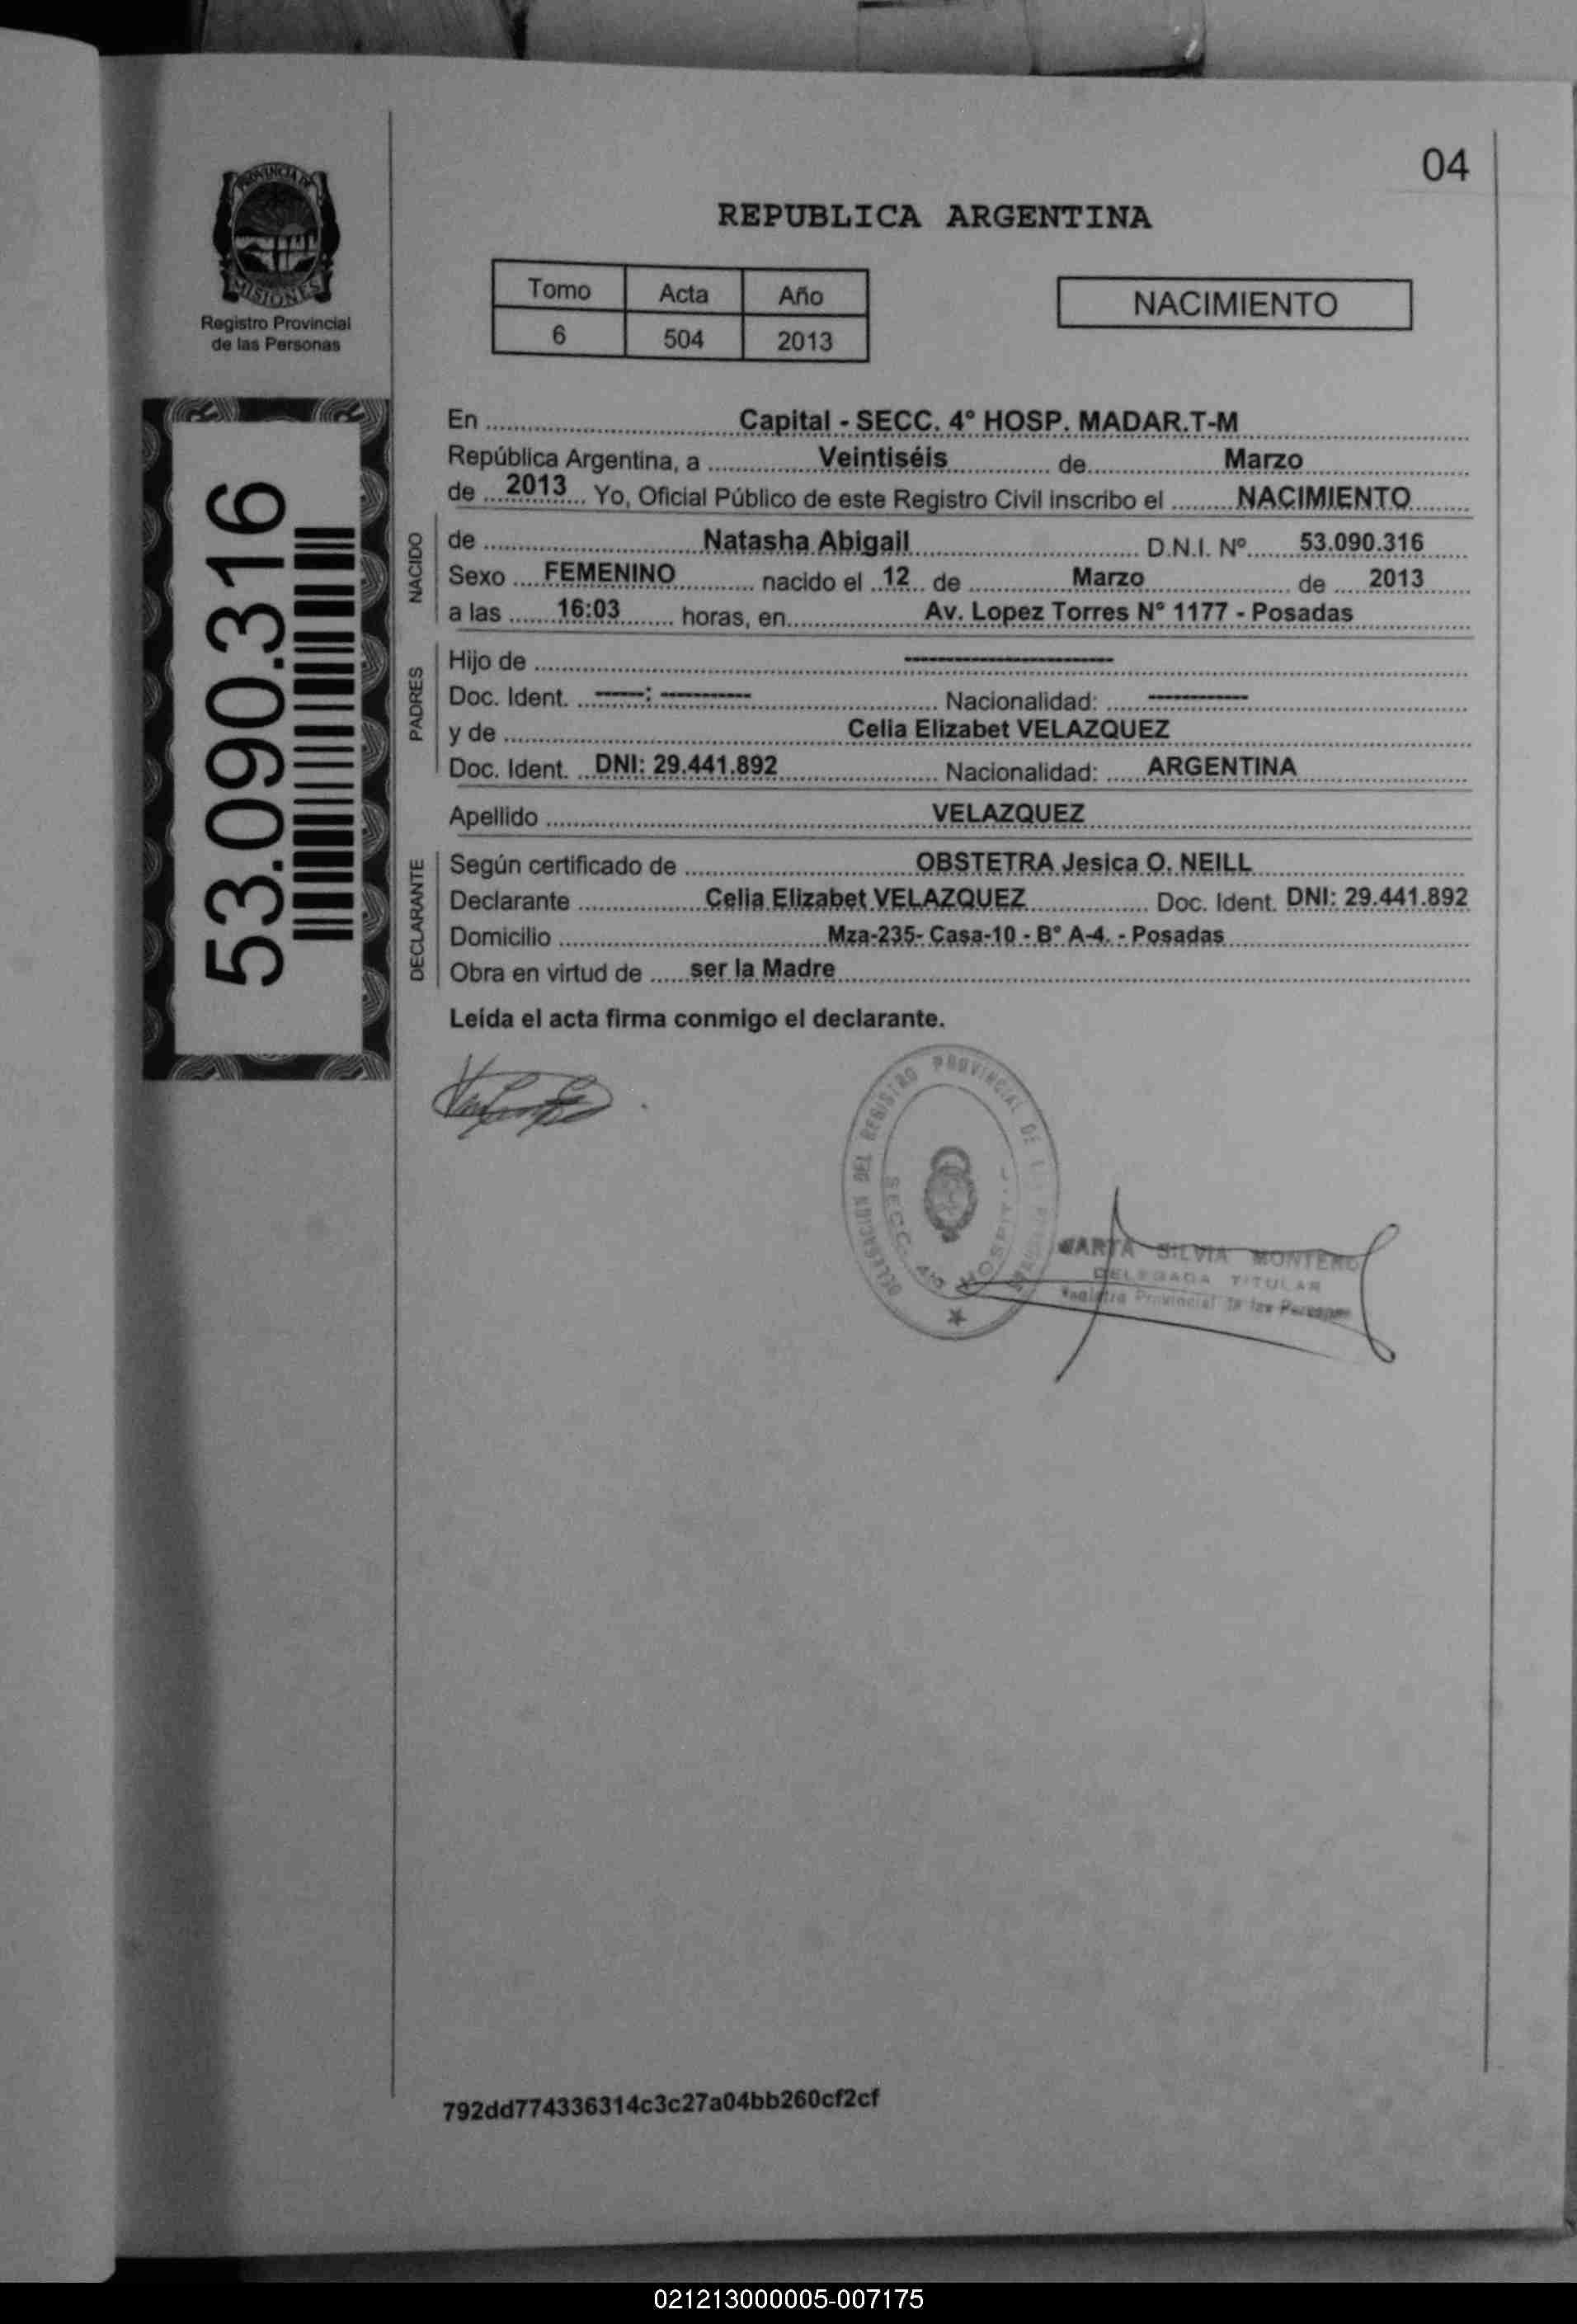 04
PROVINCIA DE
MISIONES
Registro Provincial
de las Personas
REPUBLICA ARGENTINA
Tomo Acta Año
6 504 2013
NACIMIENTO
53.090.316
En Capital - SECC. 4° HOSP. MADAR.T-M
República Argentina, a Veintiséis de Marzo
de 2013 Yo, Oficial Público de este Registro Civil inscribo el NACIMIENTO
NACIDO
de Natasha Abigail D.N.I. Nº 53.090.316
Sexo FEMENINO nacido el 12 de Marzo de 2013
a las 16:03 horas, en Av. Lopez Torres N° 1177 - Posadas
PADRES
Hijo de ----------
Doc. Ident. ----: -------- Nacionalidad: ----------
y de Celia Elizabet VELAZQUEZ
Doc. Ident. DNI: 29.441.892 Nacionalidad: ARGENTINA
Apellido VELAZQUEZ
DECLARANTE
Según certificado de OBSTETRA Jesica O. NEILL
Declarante Celia Elizabet VELAZQUEZ Doc. Ident. DNI: 29.441.892
Domicilio Mza-235- Casa-10 - B° A-4. - Posadas
Obra en virtud de ser la Madre
Leída el acta firma conmigo el declarante.
DELEGACION DEL REGISTRO PROVINCIAL DE
SECC. 4ta HOSPIT
MARTA SILVIA MONTERO
DELEGADA TITULAR
Registro Provincial de las Personas
792dd774336314c3c27a04bb260cf2cf
021213000005-007175